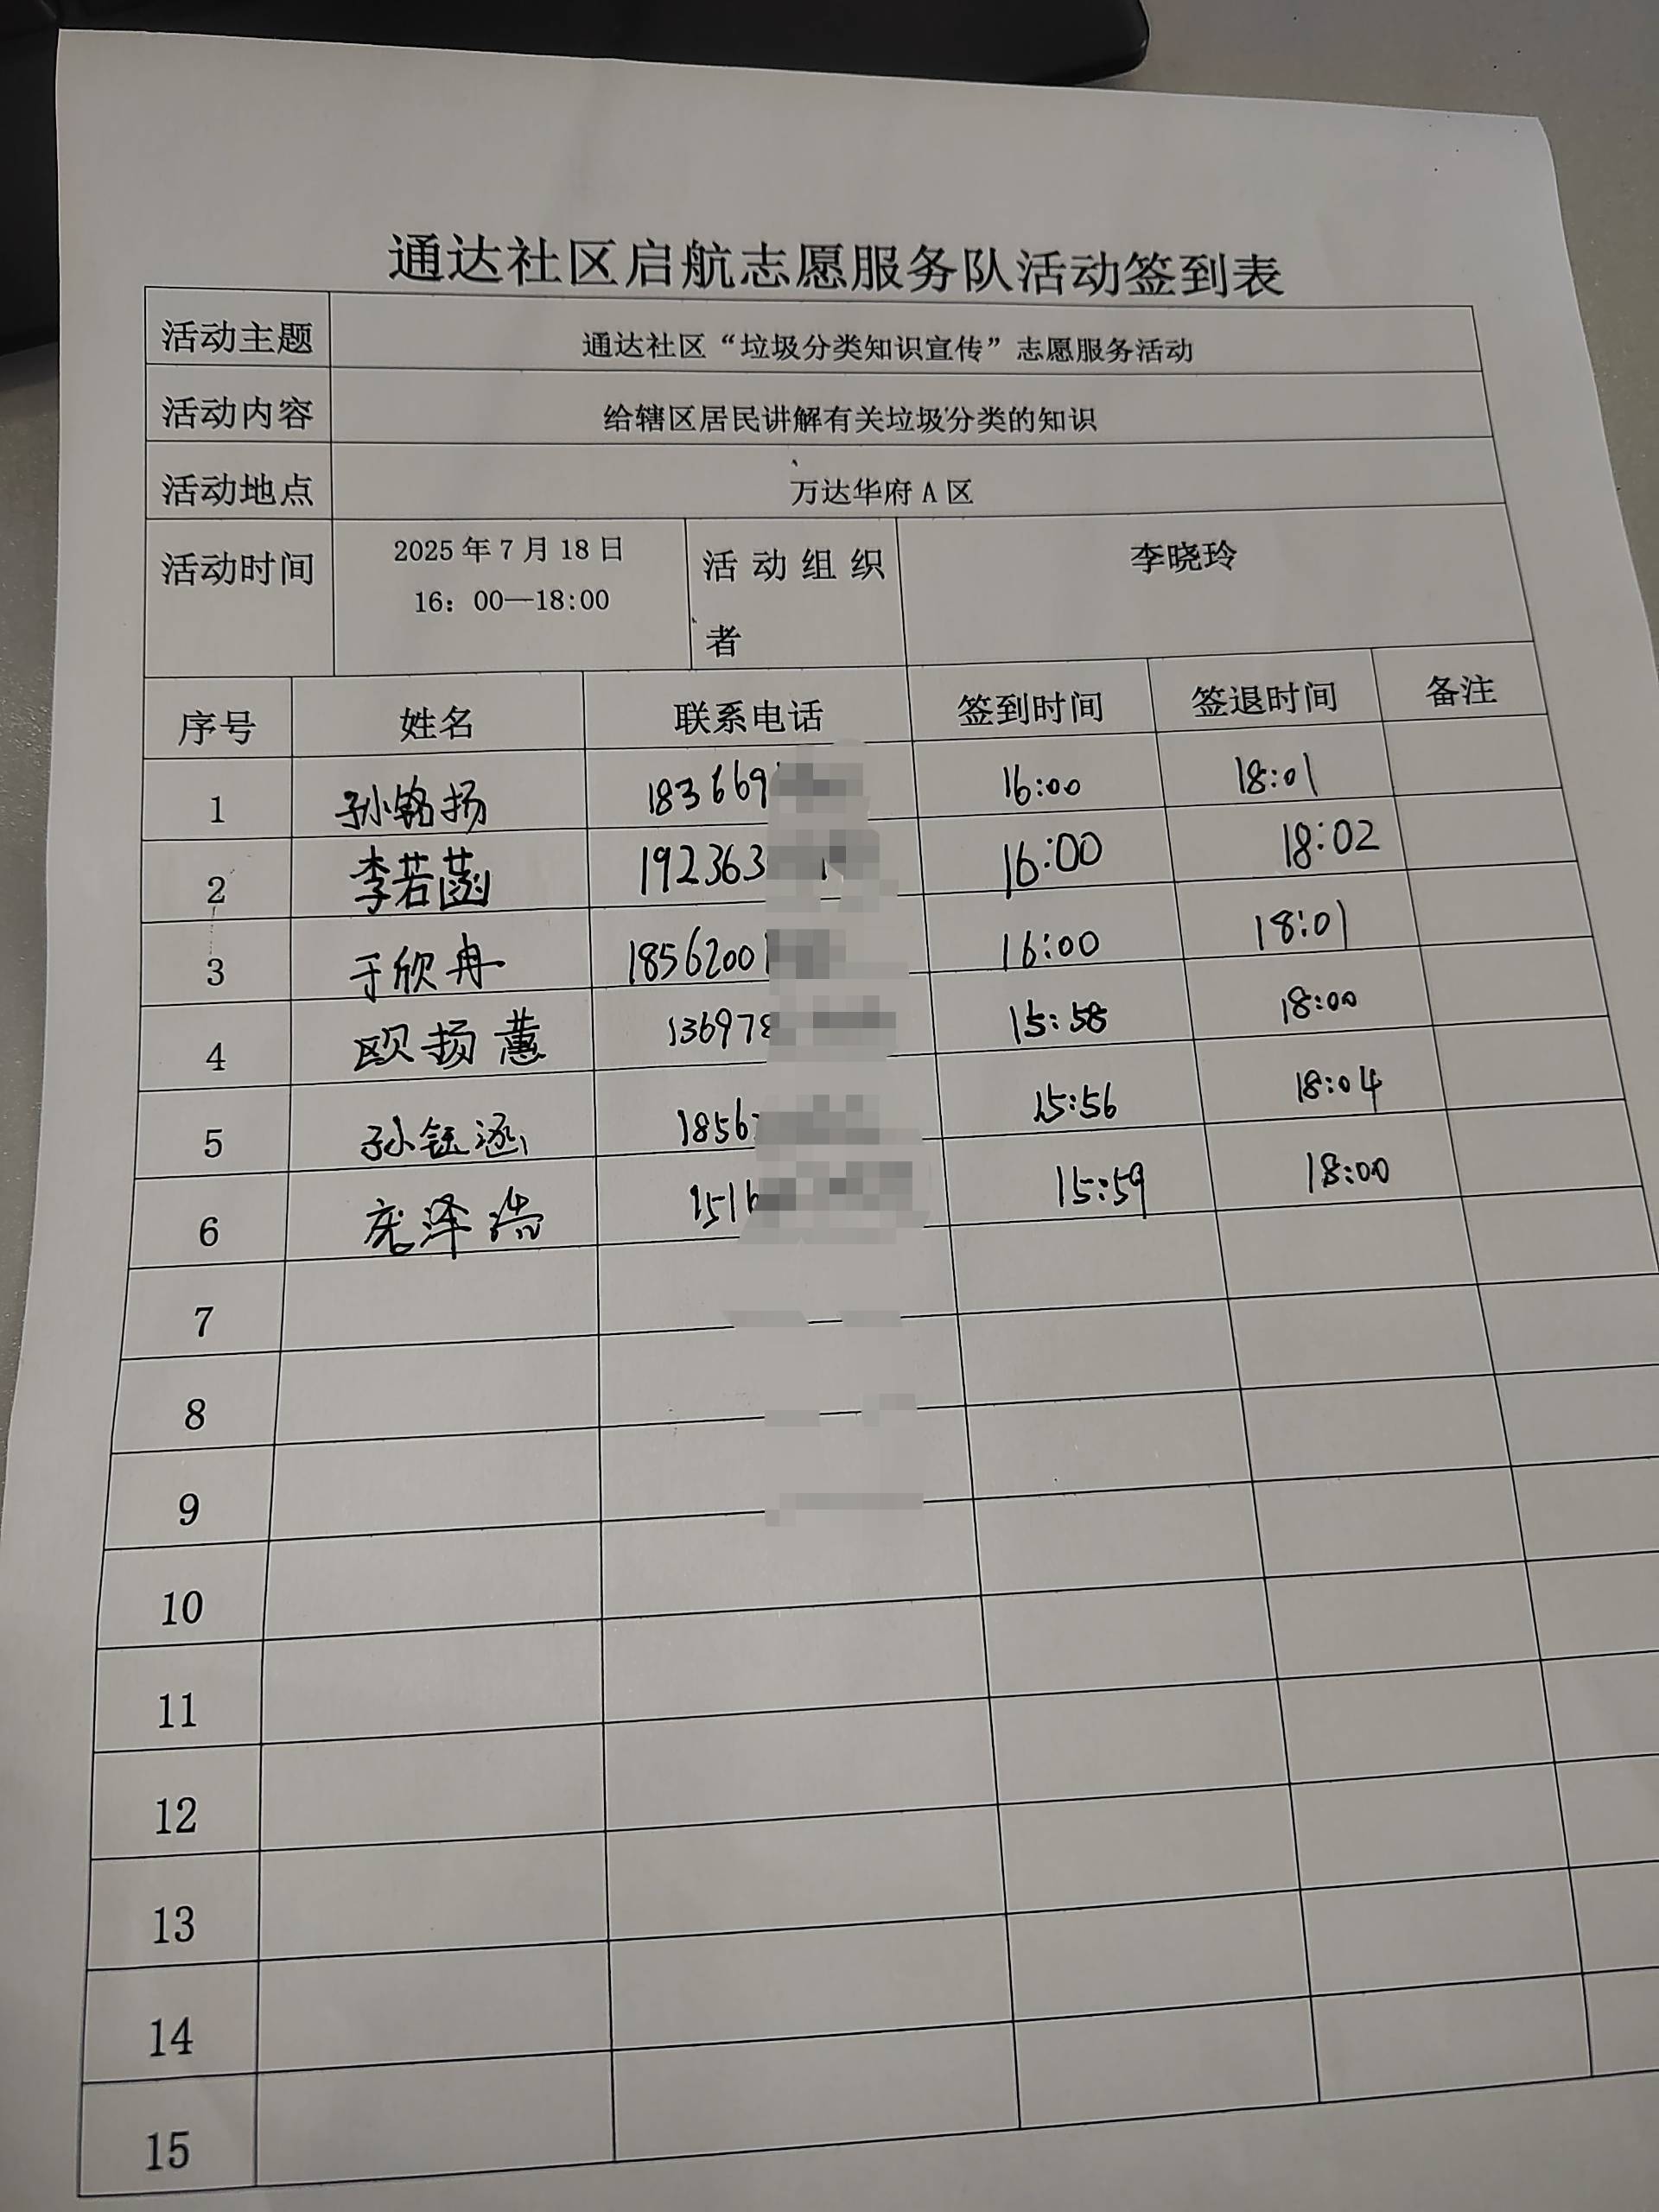 通达社区启航志愿服务队活动签到表
活动主题 通达社区“垃圾分类知识宣传”志愿服务活动
活动内容 给辖区居民讲解有关垃圾分类的知识
活动地点 万达华府 A 区
活动时间 2025 年 7 月 18 日 活动组织 李晓玲
16：00—18:00 者
序号 姓名 联系电话 签到时间 签退时间 备注
1 孙铭扬 183669 16:00 18:01
2 李若菡 192363 16:00 18:02
3 于欣冉 18562001 16:00 18:01
4 欧扬蕙 136978 15:58 18:00
5 孙钰涵 1856 15:56 18:04
6 庞泽浩 1516 15:59 18:00
7
8
9
10
11
12
13
14
15